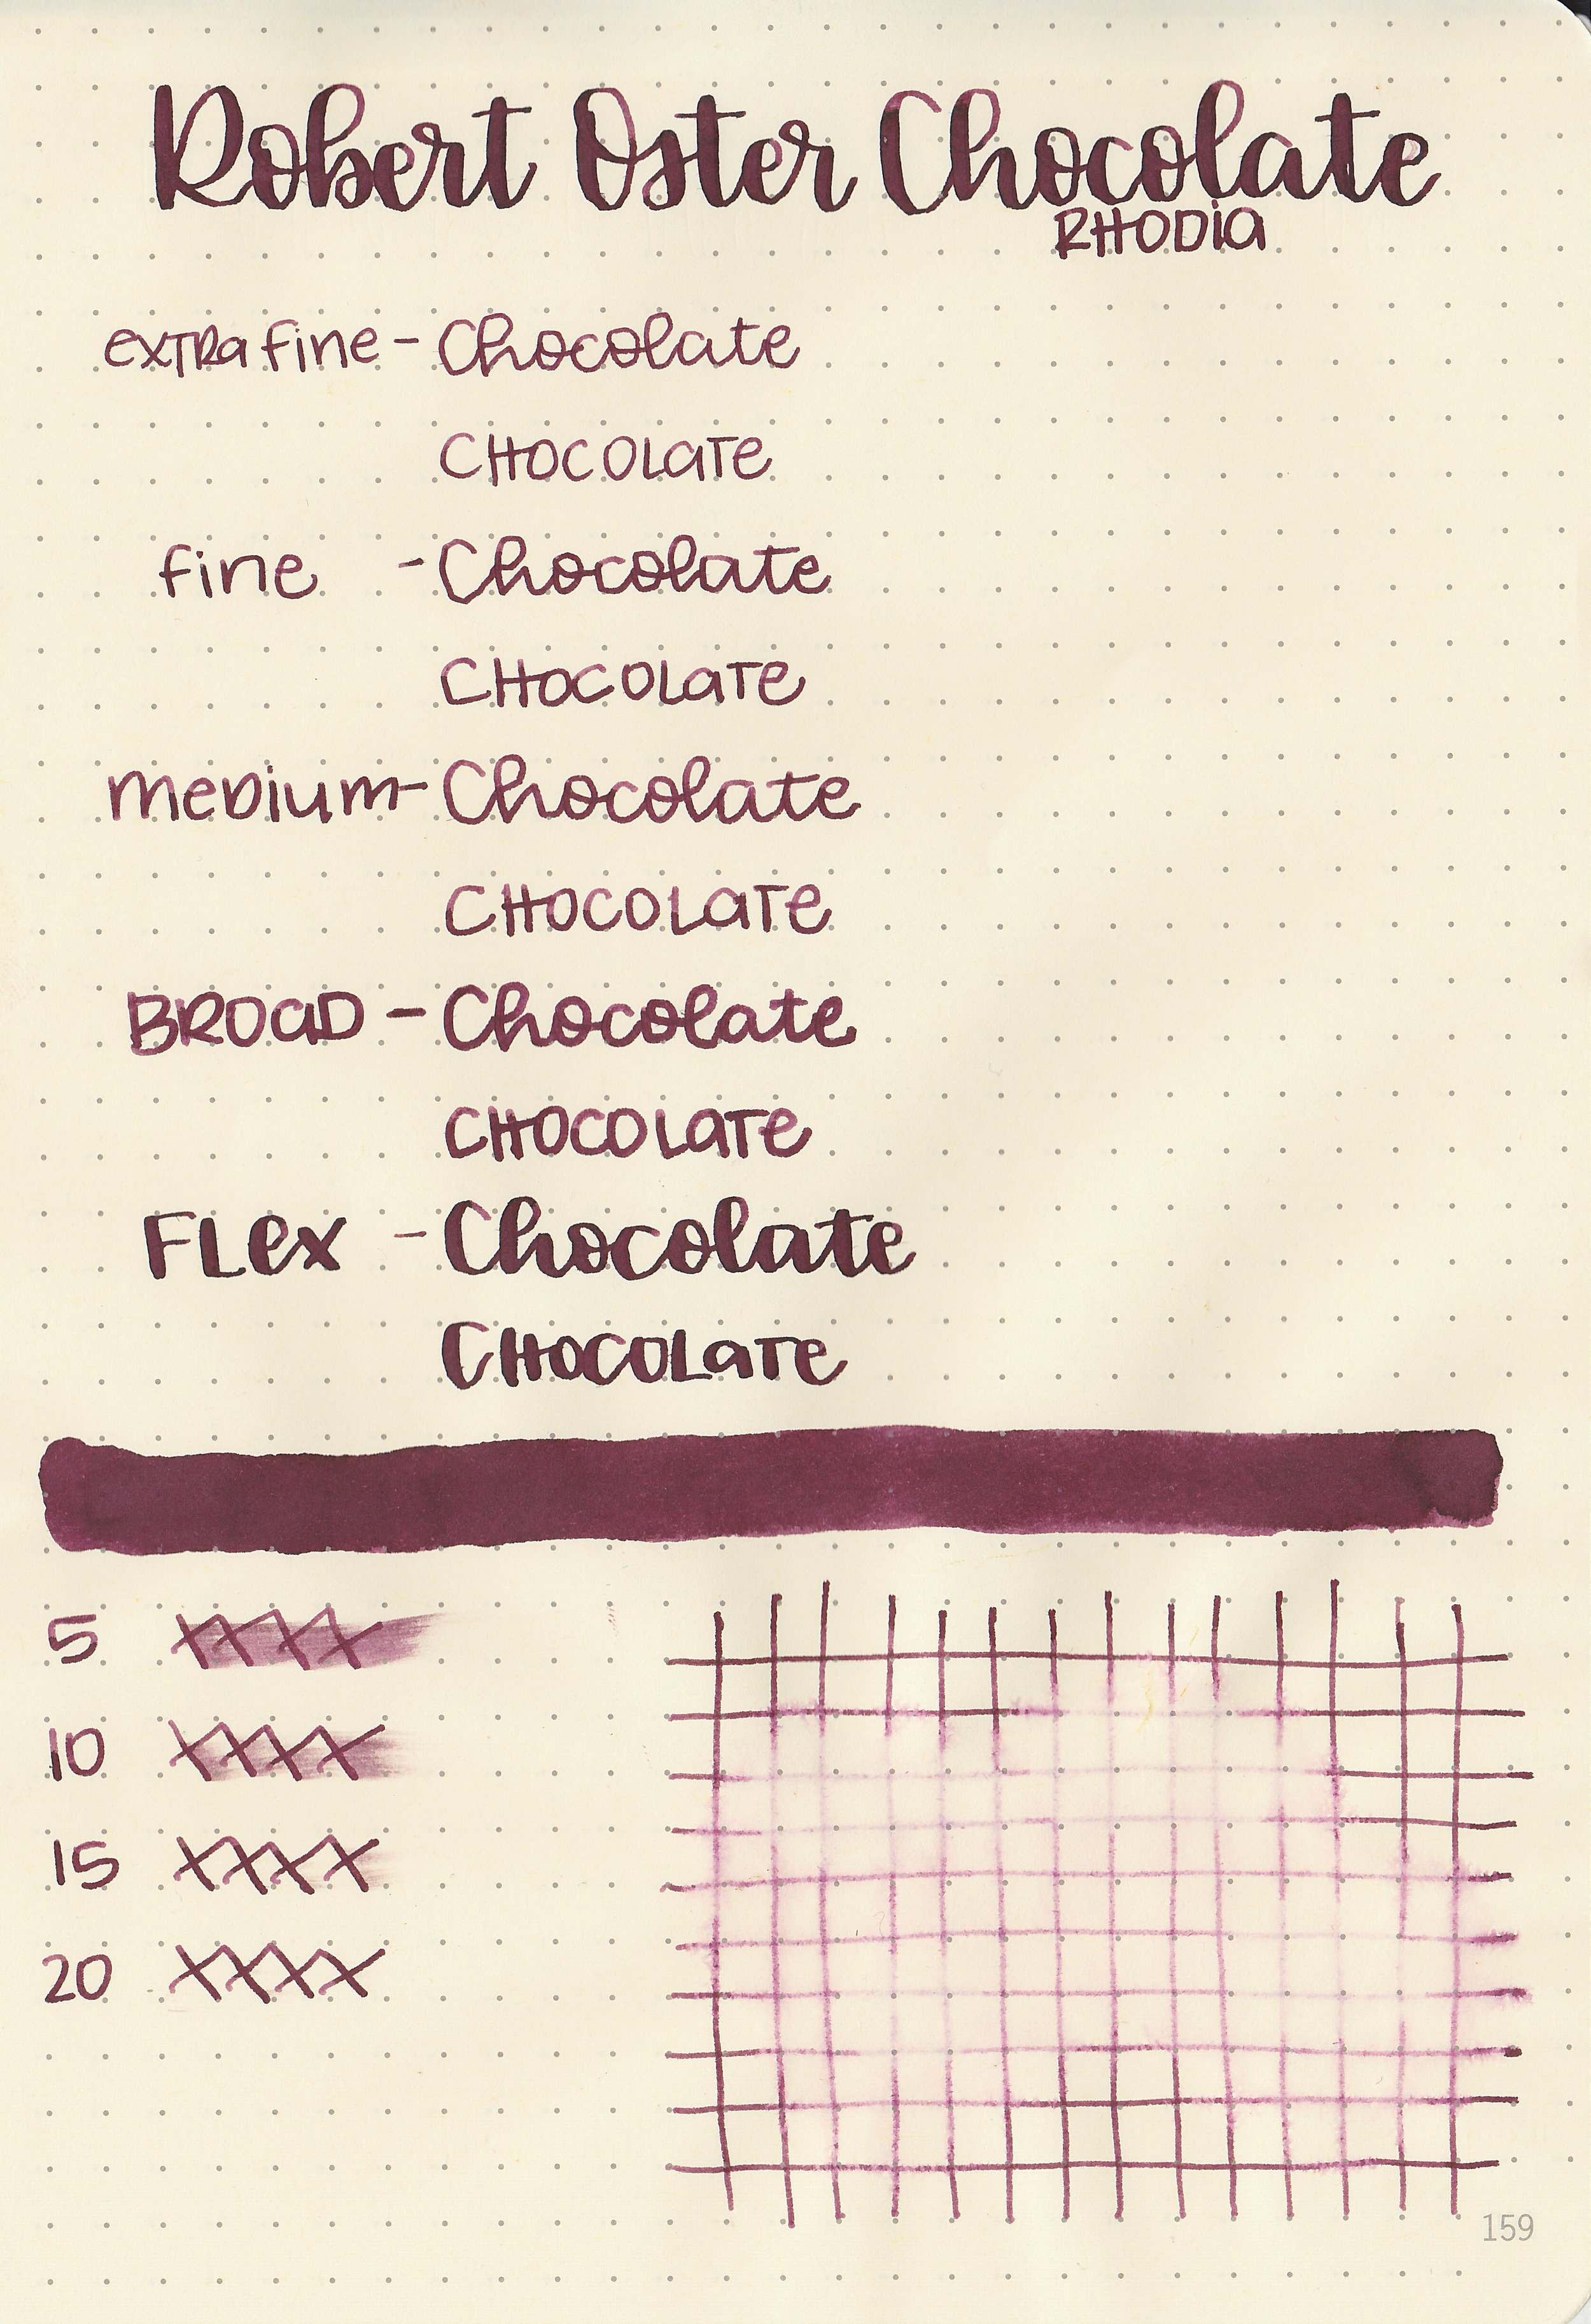 Robert Oster Chocolate
RHODia
exTRa fine - Chocolate
CHOCOLaTe
fine - Chocolate
CHOCOLaTe
meDium - Chocolate
CHOCOLaTe
BROaD - Chocolate
CHOCOLaTe
FLex - Chocolate
CHOCOLaTe
5 XXXX
10 XXXX
15 XXXX
20 XXXX
159